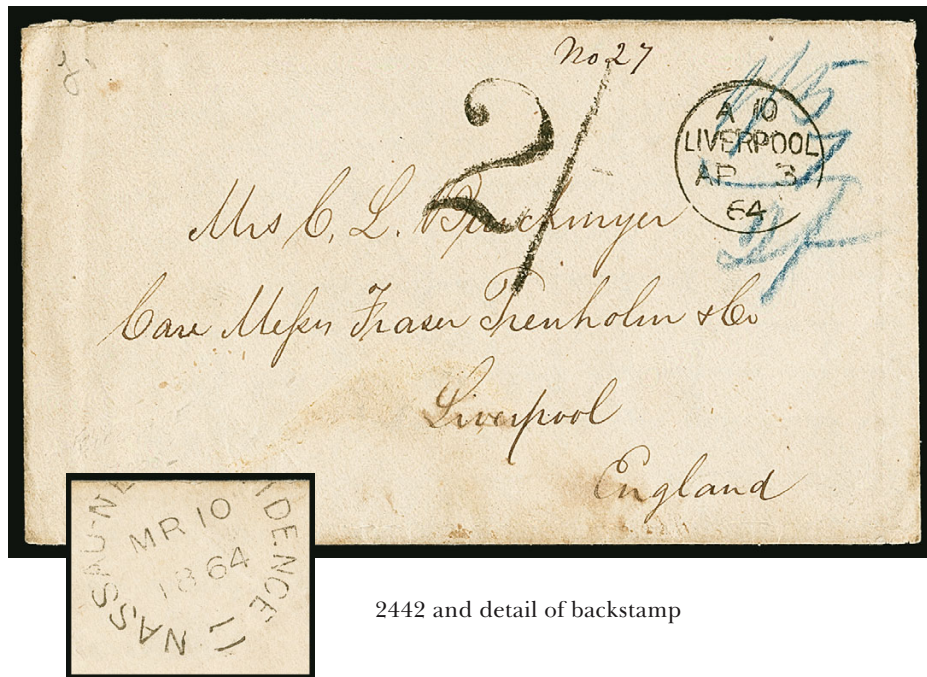 No 27
2/
A 10
LIVERPOOL
AP 3
64
Mrs C. L.
Care Messrs Fraser Trenholm & Co
Liverpool
England
NASSAU·NE IDENCE
MR 10
1864
2442 and detail of backstamp